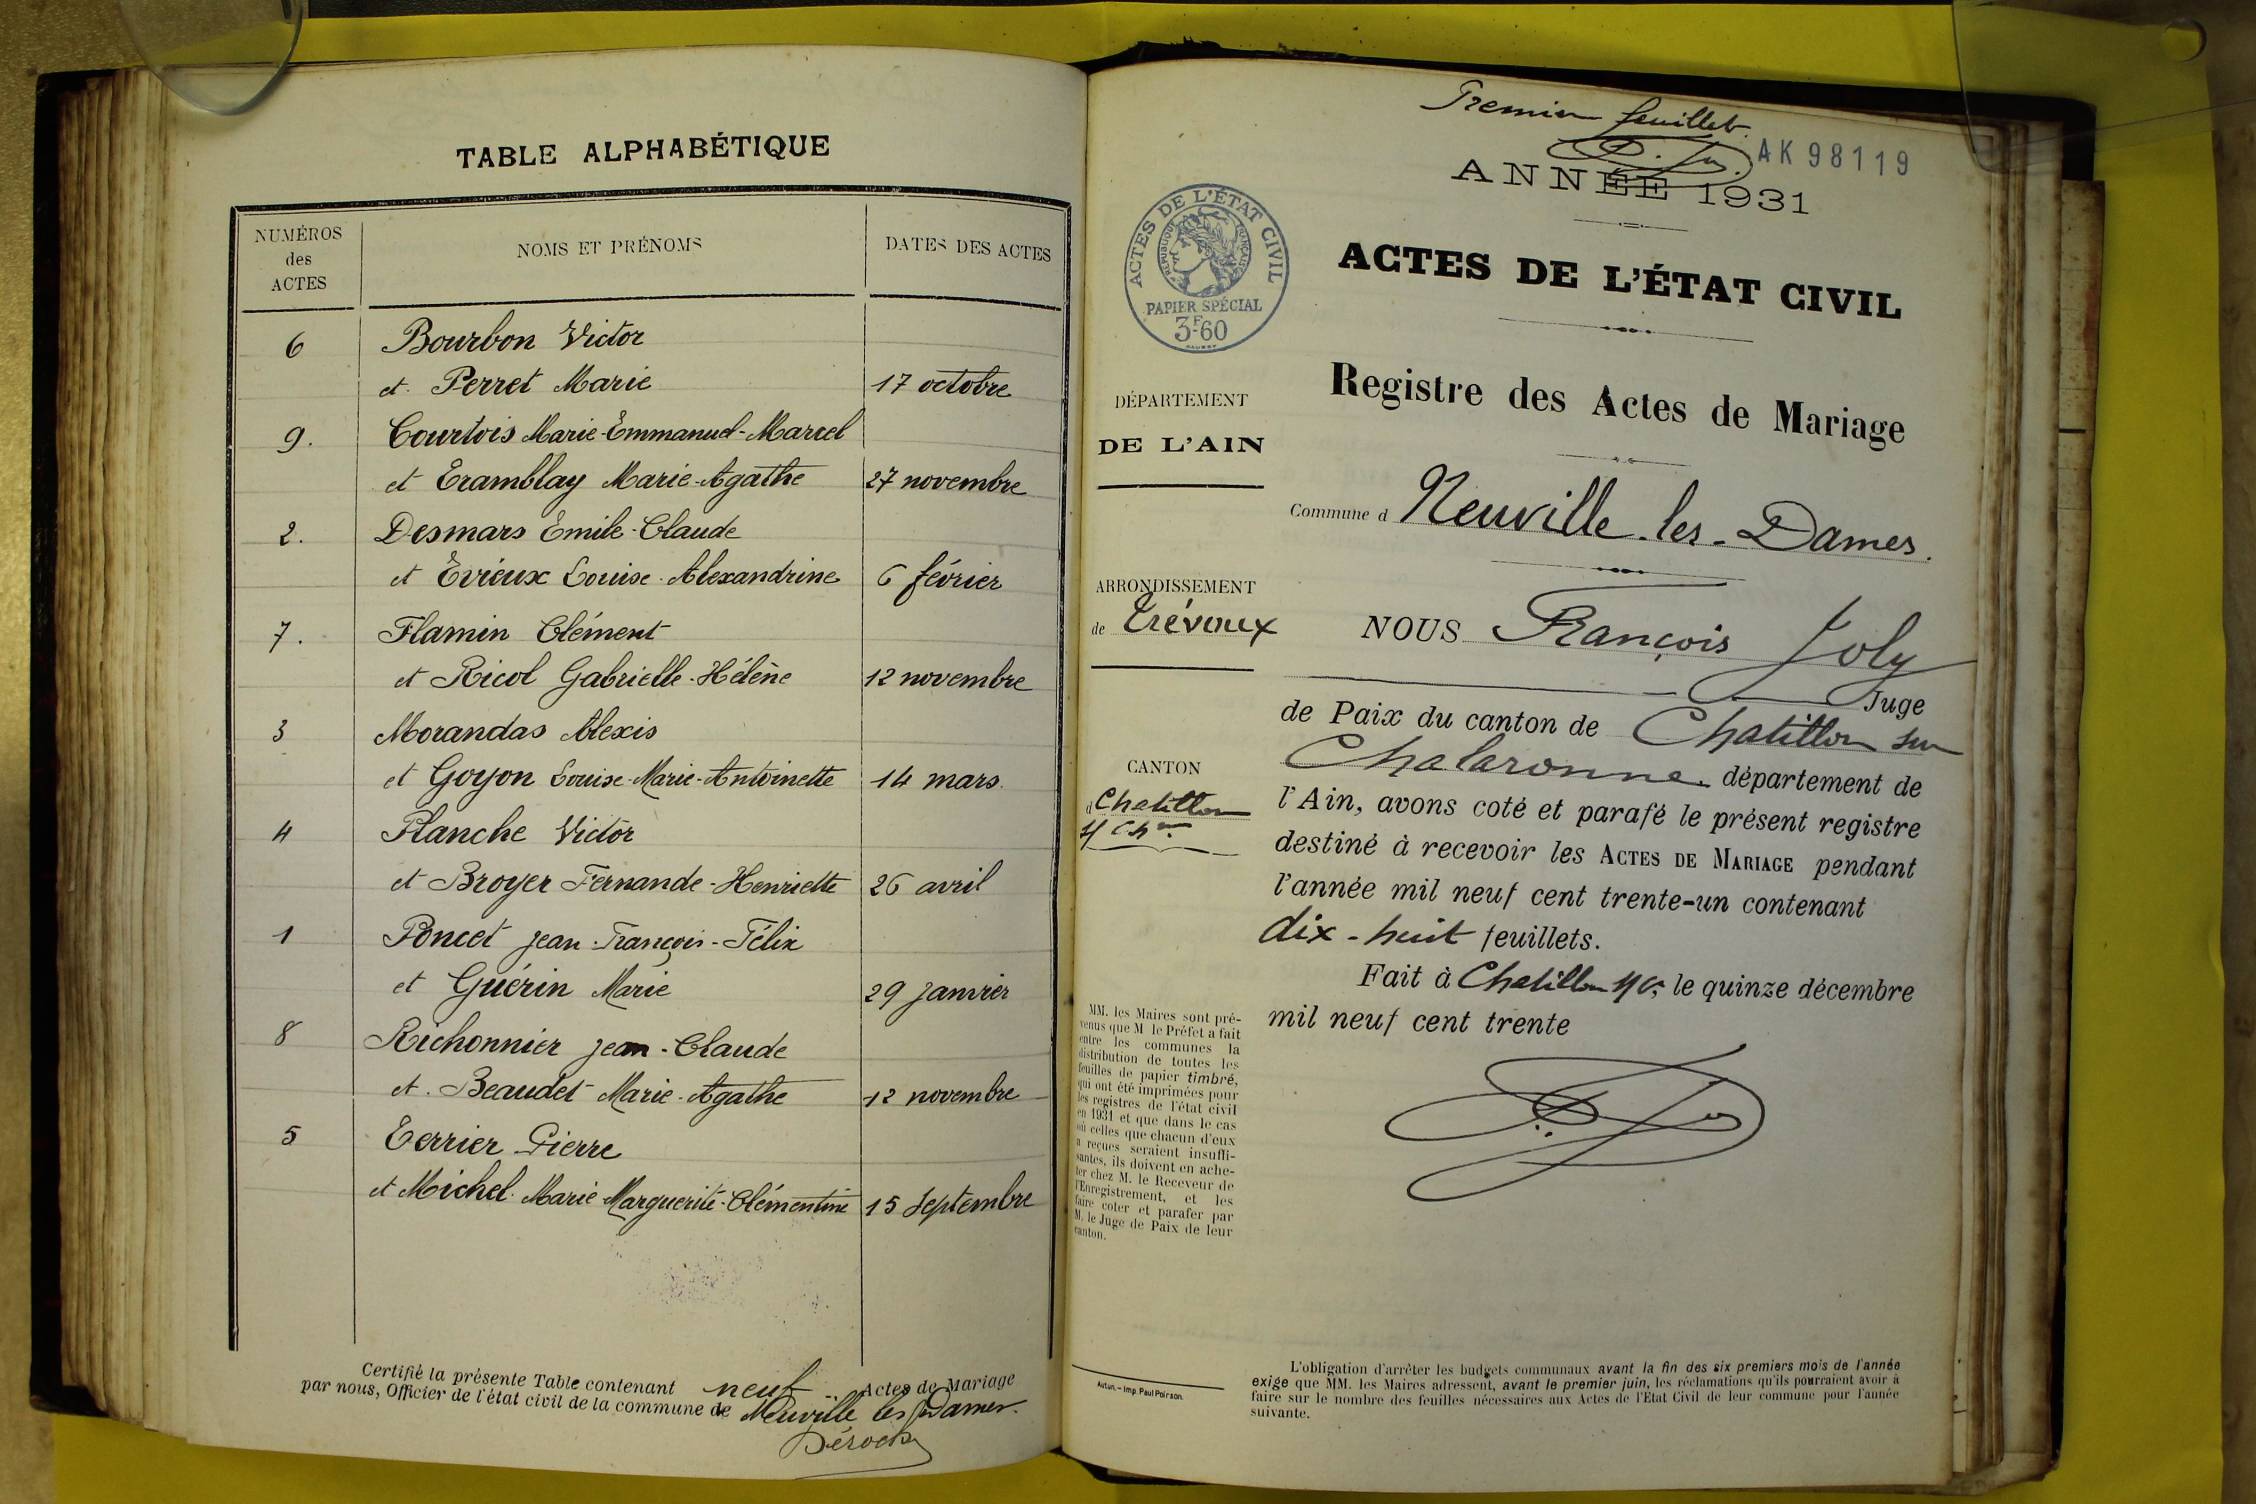 TABLE ALPHABÉTIQUE
NUMÉROS
des
ACTES
NOMS ET PRÉNOMS
DATES DES ACTES
6 Bourbon Victor
et Perret Marie 17 octobre
9. Courtois Marie-Emmanuel-Marcel
et Tramblay Marie-Agathe 27 novembre
2. Desmars Emile-Claude
et Evieux Louise-Alexandrine 6 février
7. Flamin Clément
et Ricol Gabrielle-Hélène 12 novembre
3 Morandas Alexis
et Goyon Louise-Marie-Antoinette 14 mars
4 Planche Victor
et Broyer Fernande-Henriette 26 avril
1 Poncet Jean-François-Félix
et Guérin Marie 29 janvier
8 Richonnier Jean-Claude
et Beaudet Marie-Agathe 12 novembre
5 Terrier Pierre
et Michel Marie-Marguerite-Clémentine 15 septembre
Certifié la présente Table contenant neuf Actes de Mariage
par nous, Officier de l'état civil de la commune de Neuville les Dames.
Premier feuillet.
AK 98119
ANNÉE 1931
ACTES DE L'ÉTAT CIVIL
RÉPUBLIQUE FRANÇAISE
PAPIER SPÉCIAL
3F60
ACTES DE L'ÉTAT CIVIL
Registre des Actes de Mariage
DÉPARTEMENT
DE L'AIN
Commune d Neuville-les-Dames.
ARRONDISSEMENT
de Trévoux
NOUS François Joly
Juge
de Paix du canton de Chatillon sur
Chalaronne département de
l'Ain, avons coté et parafé le présent registre
destiné à recevoir les ACTES DE MARIAGE pendant
l'année mil neuf cent trente-un contenant
dix-huit feuillets.
Fait à Chatillon s/C, le quinze décembre
mil neuf cent trente
CANTON
d Chatillon
s/ Chne
MM. les Maires sont pré-
venus que M le Préfet a fait
entre les communes la
distribution de toutes les
feuilles de papier timbré,
qui ont été imprimées pour
les registres de l'état civil
en 1931 et que dans le cas
où celles que chacun d'eux
a reçues seraient insuffi-
santes, ils doivent en ache-
ter chez M. le Receveur de
l'Enregistrement, et les
faire coter et parafer par
M. le Juge de Paix de leur
canton.
Autun. – Imp. Paul Poirson.
L'obligation d'arrêter les budgets communaux avant la fin des six premiers mois de l'année
exige que MM. les Maires adressent, avant le premier juin, les réclamations qu'ils pourraient avoir à
faire sur le nombre des feuilles nécessaires aux Actes de l'Etat Civil de leur commune pour l'année
suivante.